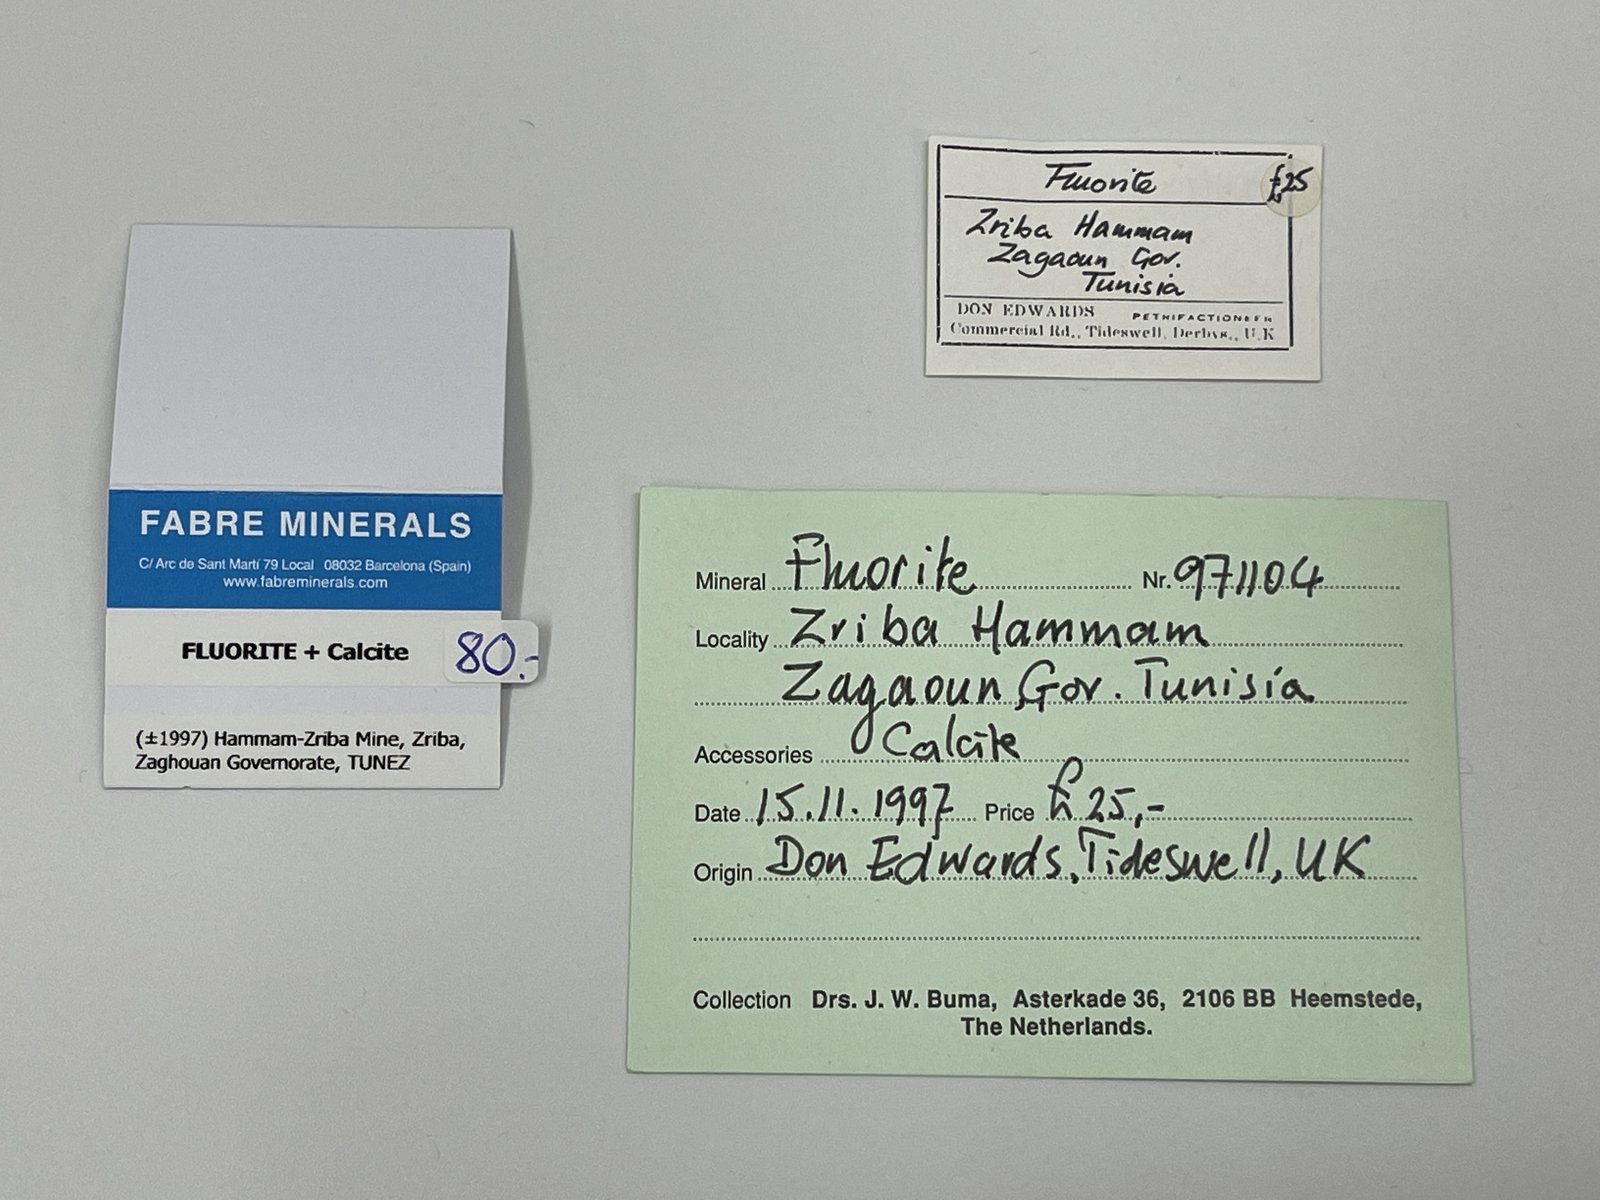 FABRE MINERALS
C/ Arc de Sant Martí 79 Local 08032 Barcelona (Spain)
www.fabreminerals.com
FLUORITE + Calcite 80.-
(±1997) Hammam-Zriba Mine, Zriba,
Zaghouan Governorate, TUNEZ
Fluorite £25
Zriba Hammam
Zagaoun Gov.
Tunisia
DON EDWARDS PETRIFACTIONEER
Commercial Rd., Tideswell, Derbys., U.K
Mineral Fluorite Nr. 971104
Locality Zriba Hammam
Zagaoun Gov. Tunisia
Accessories Calcite
Date 15.11.1997 Price £25,-
Origin Don Edwards, Tideswell, UK
Collection Drs. J. W. Buma, Asterkade 36, 2106 BB Heemstede,
The Netherlands.